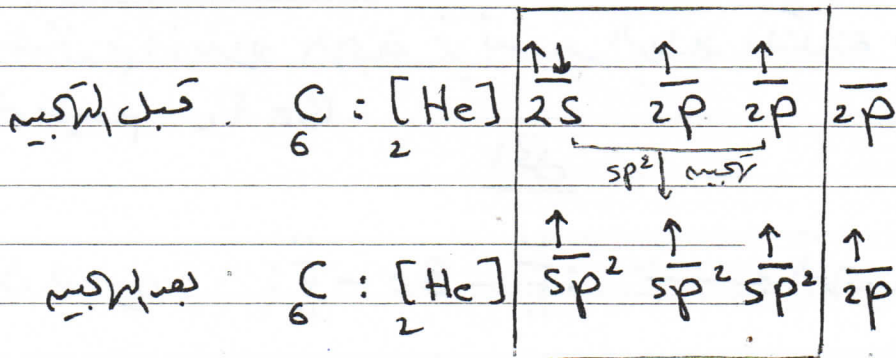 ↑↓ ↑ ↑
قبل التهجين C : [He] 2S 2p 2p 2p
6 2
sp² تهجين
↑ ↑ ↑ ↑
بعد التهجين C : [He] sp² sp² sp² 2p
6 2